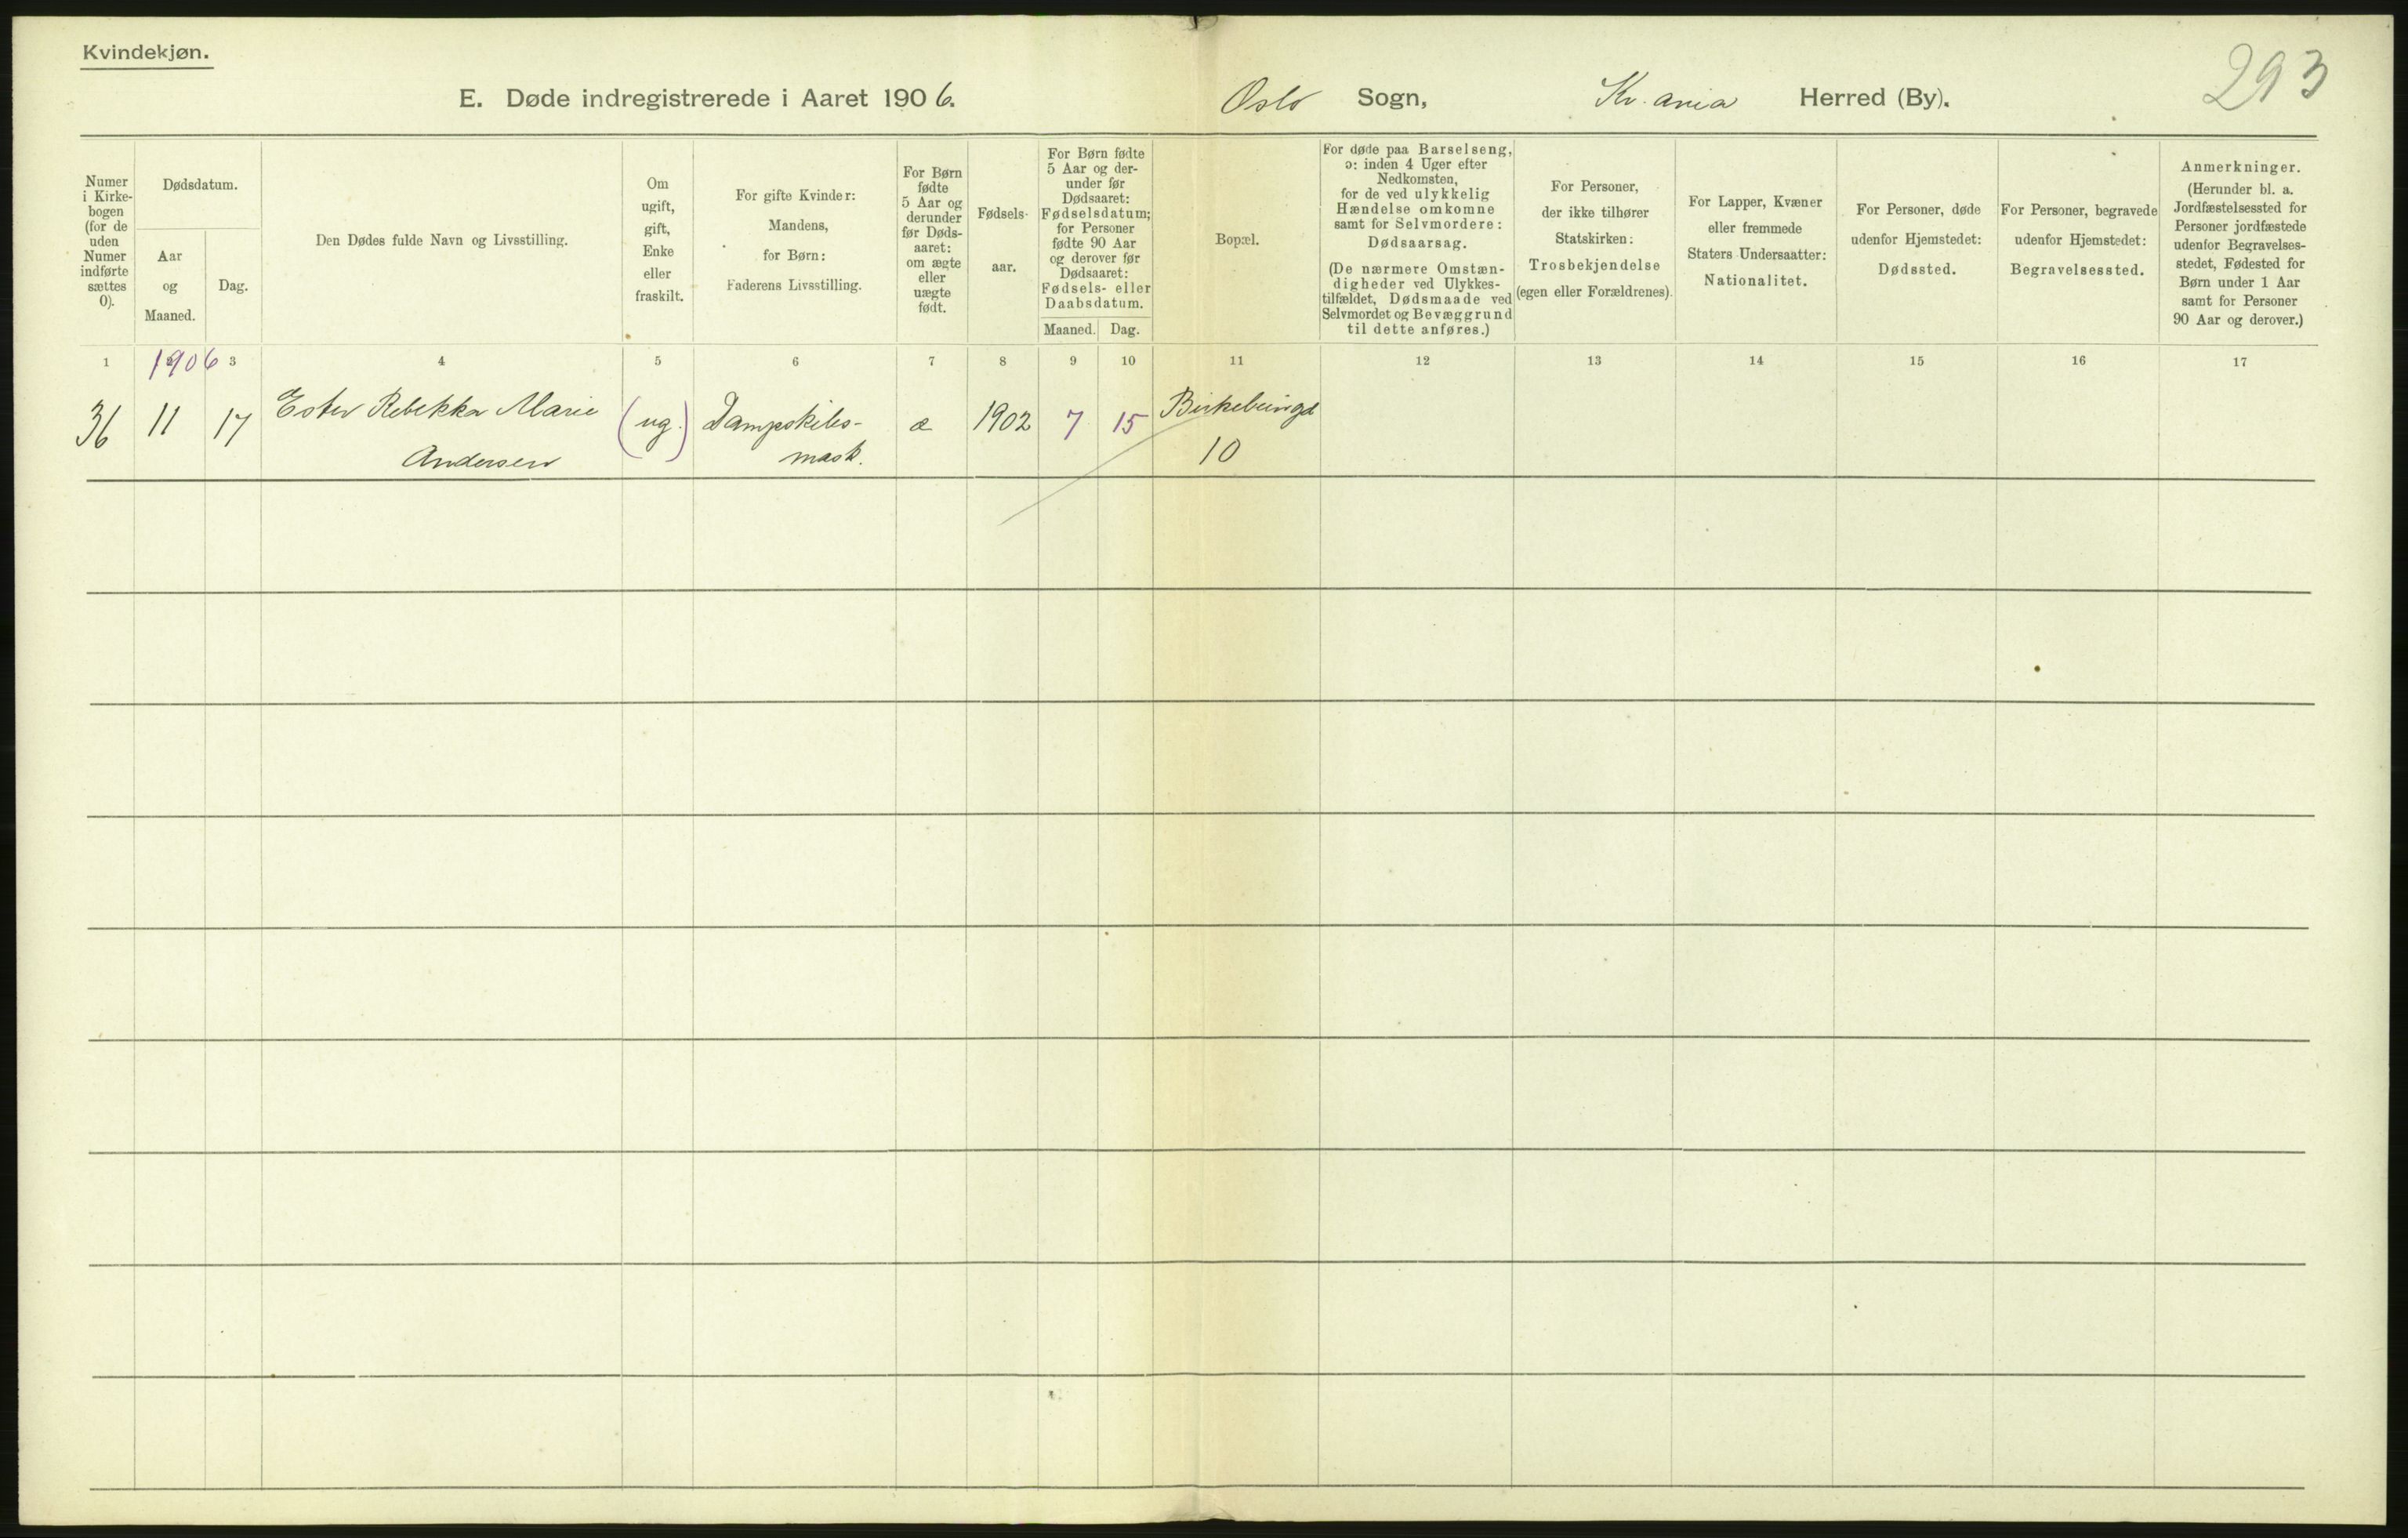 Kvindekjøn.
E. Døde indregistrerede i Aaret 1906. Oslo Sogn, Kr.ania Herred (By).
293
Numer
i Kirke-
bogen
(for de
uden
Numer
indførte
sættes
0).
Dødsdatum.
Aar
og
Maaned.
Dag.
Den Dødes fulde Navn og Livsstilling.
Om
ugift,
gift,
Enke
eller
fraskilt.
For gifte Kvinder:
Mandens,
for Børn:
Faderens Livsstilling.
For Børn
fødte
5 Aar og
derunder
før Døds-
aaret:
om ægte
eller
uægte
født.
Fødsels-
aar.
For Børn fødte
5 Aar og der-
under før
Dødsaaret:
Fødselsdatum;
for Personer
fødte 90 Aar
og derover før
Dødsaaret:
Fødsels- eller
Daabsdatum.
Maaned. Dag.
Bopæl.
For døde paa Barselseng,
ɔ: inden 4 Uger efter
Nedkomsten,
for de ved ulykkelig
Hændelse omkomne
samt for Selvmordere:
Dødsaarsag.
(De nærmere Omstæn-
digheder ved Ulykkes-
tilfældet, Dødsmaade ved
Selvmordet og Bevæggrund
til dette anføres.)
For Personer,
der ikke tilhører
Statskirken:
Trosbekjendelse
(egen eller Forældrenes).
For Lapper, Kvæner
eller fremmede
Staters Undersaatter:
Nationalitet.
For Personer, døde
udenfor Hjemstedet:
Dødssted.
For Personer, begravede
udenfor Hjemstedet:
Begravelsessted.
Anmerkninger.
(Herunder bl. a.
Jordfæstelsessted for
Personer jordfæstede
udenfor Begravelses-
stedet, Fødested for
Børn under 1 Aar
samt for Personer
90 Aar og derover.)
1 1906 3 4 5 6 7 8 9 10 11 12 13 14 15 16 17
36 11 17 Ester Rebekka Marie (ug.) Dampskibs- æ 1902 7 15 Birkebeingd
Andersen mask. 10